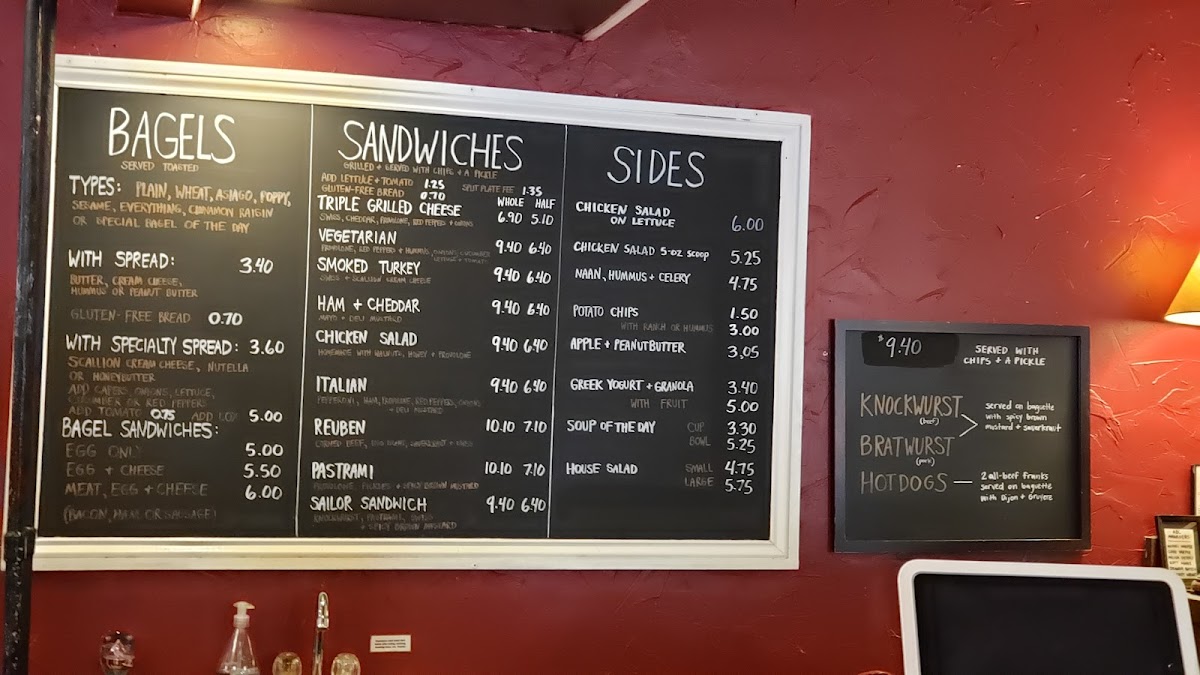 BAGELS
SERVED TOASTED
TYPES: PLAIN, WHEAT, ASIAGO, POPPY,
SESAME, EVERYTHING, CINNAMON RAISIN
OR SPECIAL BAGEL OF THE DAY
WITH SPREAD: 3.40
BUTTER, CREAM CHEESE,
HUMMUS OR PEANUT BUTTER
GLUTEN-FREE BREAD 0.70
WITH SPECIALTY SPREAD: 3.60
SCALLION CREAM CHEESE, NUTELLA
OR HONEYBUTTER
ADD CAPERS, ONIONS, LETTUCE,
CUCUMBER OR RED PEPPERS
ADD TOMATO 0.75 ADD LOX 5.00
BAGEL SANDWICHES:
EGG ONLY 5.00
EGG + CHEESE 5.50
MEAT, EGG + CHEESE 6.00
(BACON, HAM, OR SAUSAGE)
SANDWICHES
GRILLED + SERVED WITH CHIPS + A PICKLE
ADD LETTUCE + TOMATO 1.25 SPLIT PLATE FEE 1.35
GLUTEN-FREE BREAD 0.70
WHOLE HALF
TRIPLE GRILLED CHEESE 6.90 5.10
SWISS, CHEDDAR, PROVOLONE, RED PEPPERS + ONIONS
VEGETARIAN 9.40 6.40
PROVOLONE, RED PEPPERS + HUMMUS, ONIONS, CUCUMBER
LETTUCE + TOMATO
SMOKED TURKEY 9.40 6.40
SWISS + SCALLION CREAM CHEESE
HAM + CHEDDAR 9.40 6.40
MAYO + DELI MUSTARD
CHICKEN SALAD 9.40 6.40
HOMEMADE WITH WALNUTS, HONEY + PROVOLONE
ITALIAN 9.40 6.40
PEPPERONI, HAM, PROVOLONE, RED PEPPERS, ONIONS
+ DELI MUSTARD
REUBEN 10.10 7.10
CORNED BEEF, SAUERKRAUT + SWISS
PASTRAMI 10.10 7.10
PROVOLONE, PICKLES + SPICY BROWN MUSTARD
SAILOR SANDWICH 9.40 6.40
KNOCKWURST, PASTRAMI, SWISS
+ SPICY BROWN MUSTARD
SIDES
CHICKEN SALAD
ON LETTUCE 6.00
CHICKEN SALAD 5-OZ SCOOP 5.25
NAAN, HUMMUS + CELERY 4.75
POTATO CHIPS 1.50
WITH RANCH OR HUMMUS 3.00
APPLE + PEANUTBUTTER 3.05
GREEK YOGURT + GRANOLA 3.40
WITH FRUIT 5.00
SOUP OF THE DAY CUP 3.30
BOWL 5.25
HOUSE SALAD SMALL 4.75
LARGE 5.75
$9.40 SERVED WITH
CHIPS + A PICKLE
KNOCKWURST
(beef)
BRATWURST
(pork)
served on baguette
with spicy brown
mustard + sauerkraut
HOTDOGS — 2 all-beef franks
served on baguette
with Dijon + Gruyere